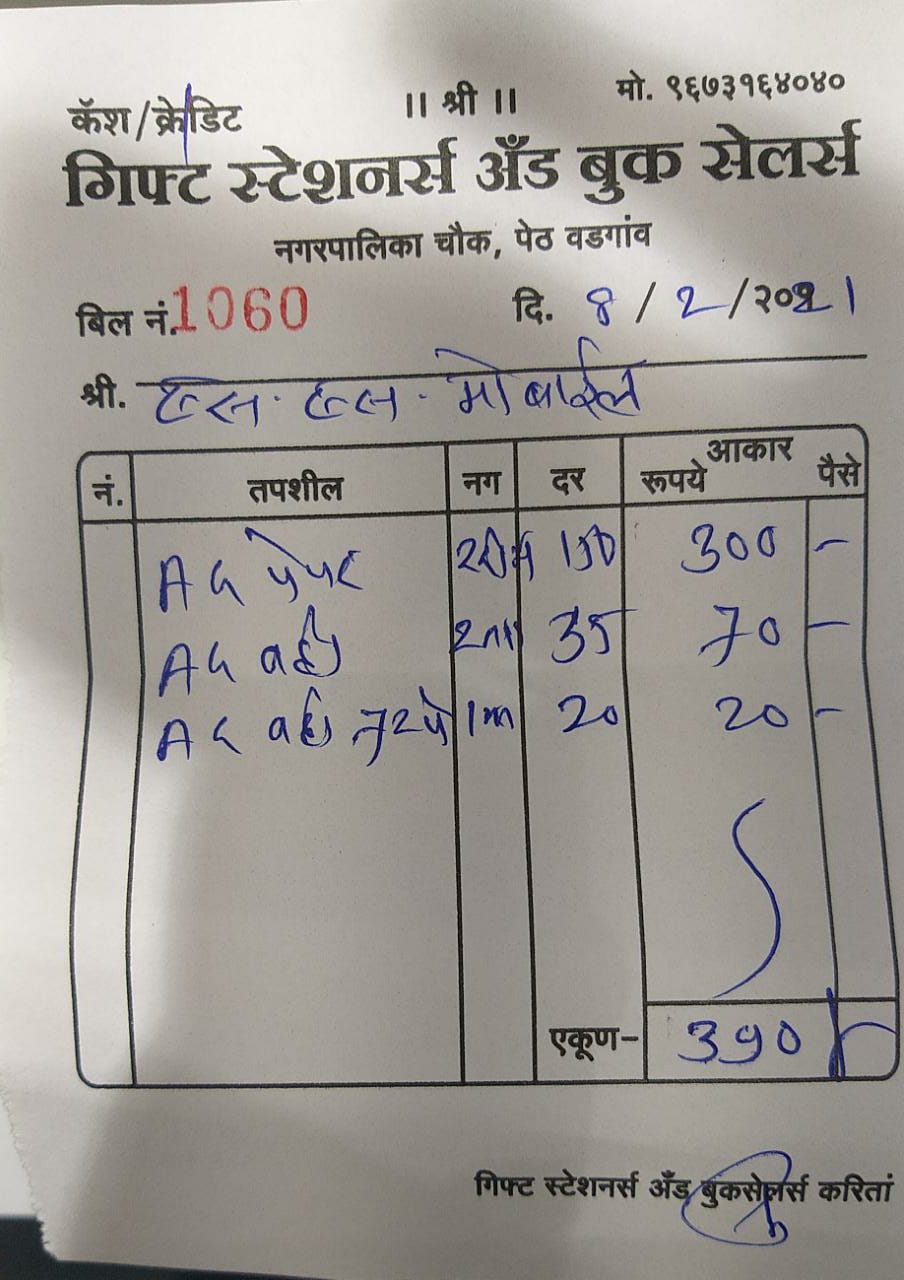 कॅश/क्रेडिट ॥ श्री ॥ मो. ९६७३१६४०४०
गिफ्ट स्टेशनर्स अँड बुक सेलर्स
नगरपालिका चौक, पेठ वडगांव
बिल नं. 1060 दि. 8 / 2 / २०21
श्री. एस. एस. मोबाईल
नं. तपशील नग दर आकार रूपये पैसे
A4 पेपर 150 300 -
A4 वही 35 70 -
A4 वही 72पे 1 20 20 -
एकूण- 390
गिफ्ट स्टेशनर्स अँड बुकसेलर्स करितां